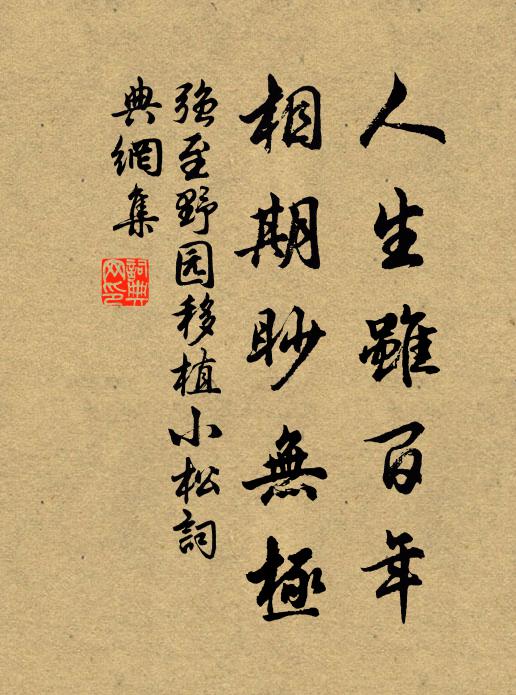 人生雖百年
相期眇無極
強至野园移植小松詞
典網集
詞典网印